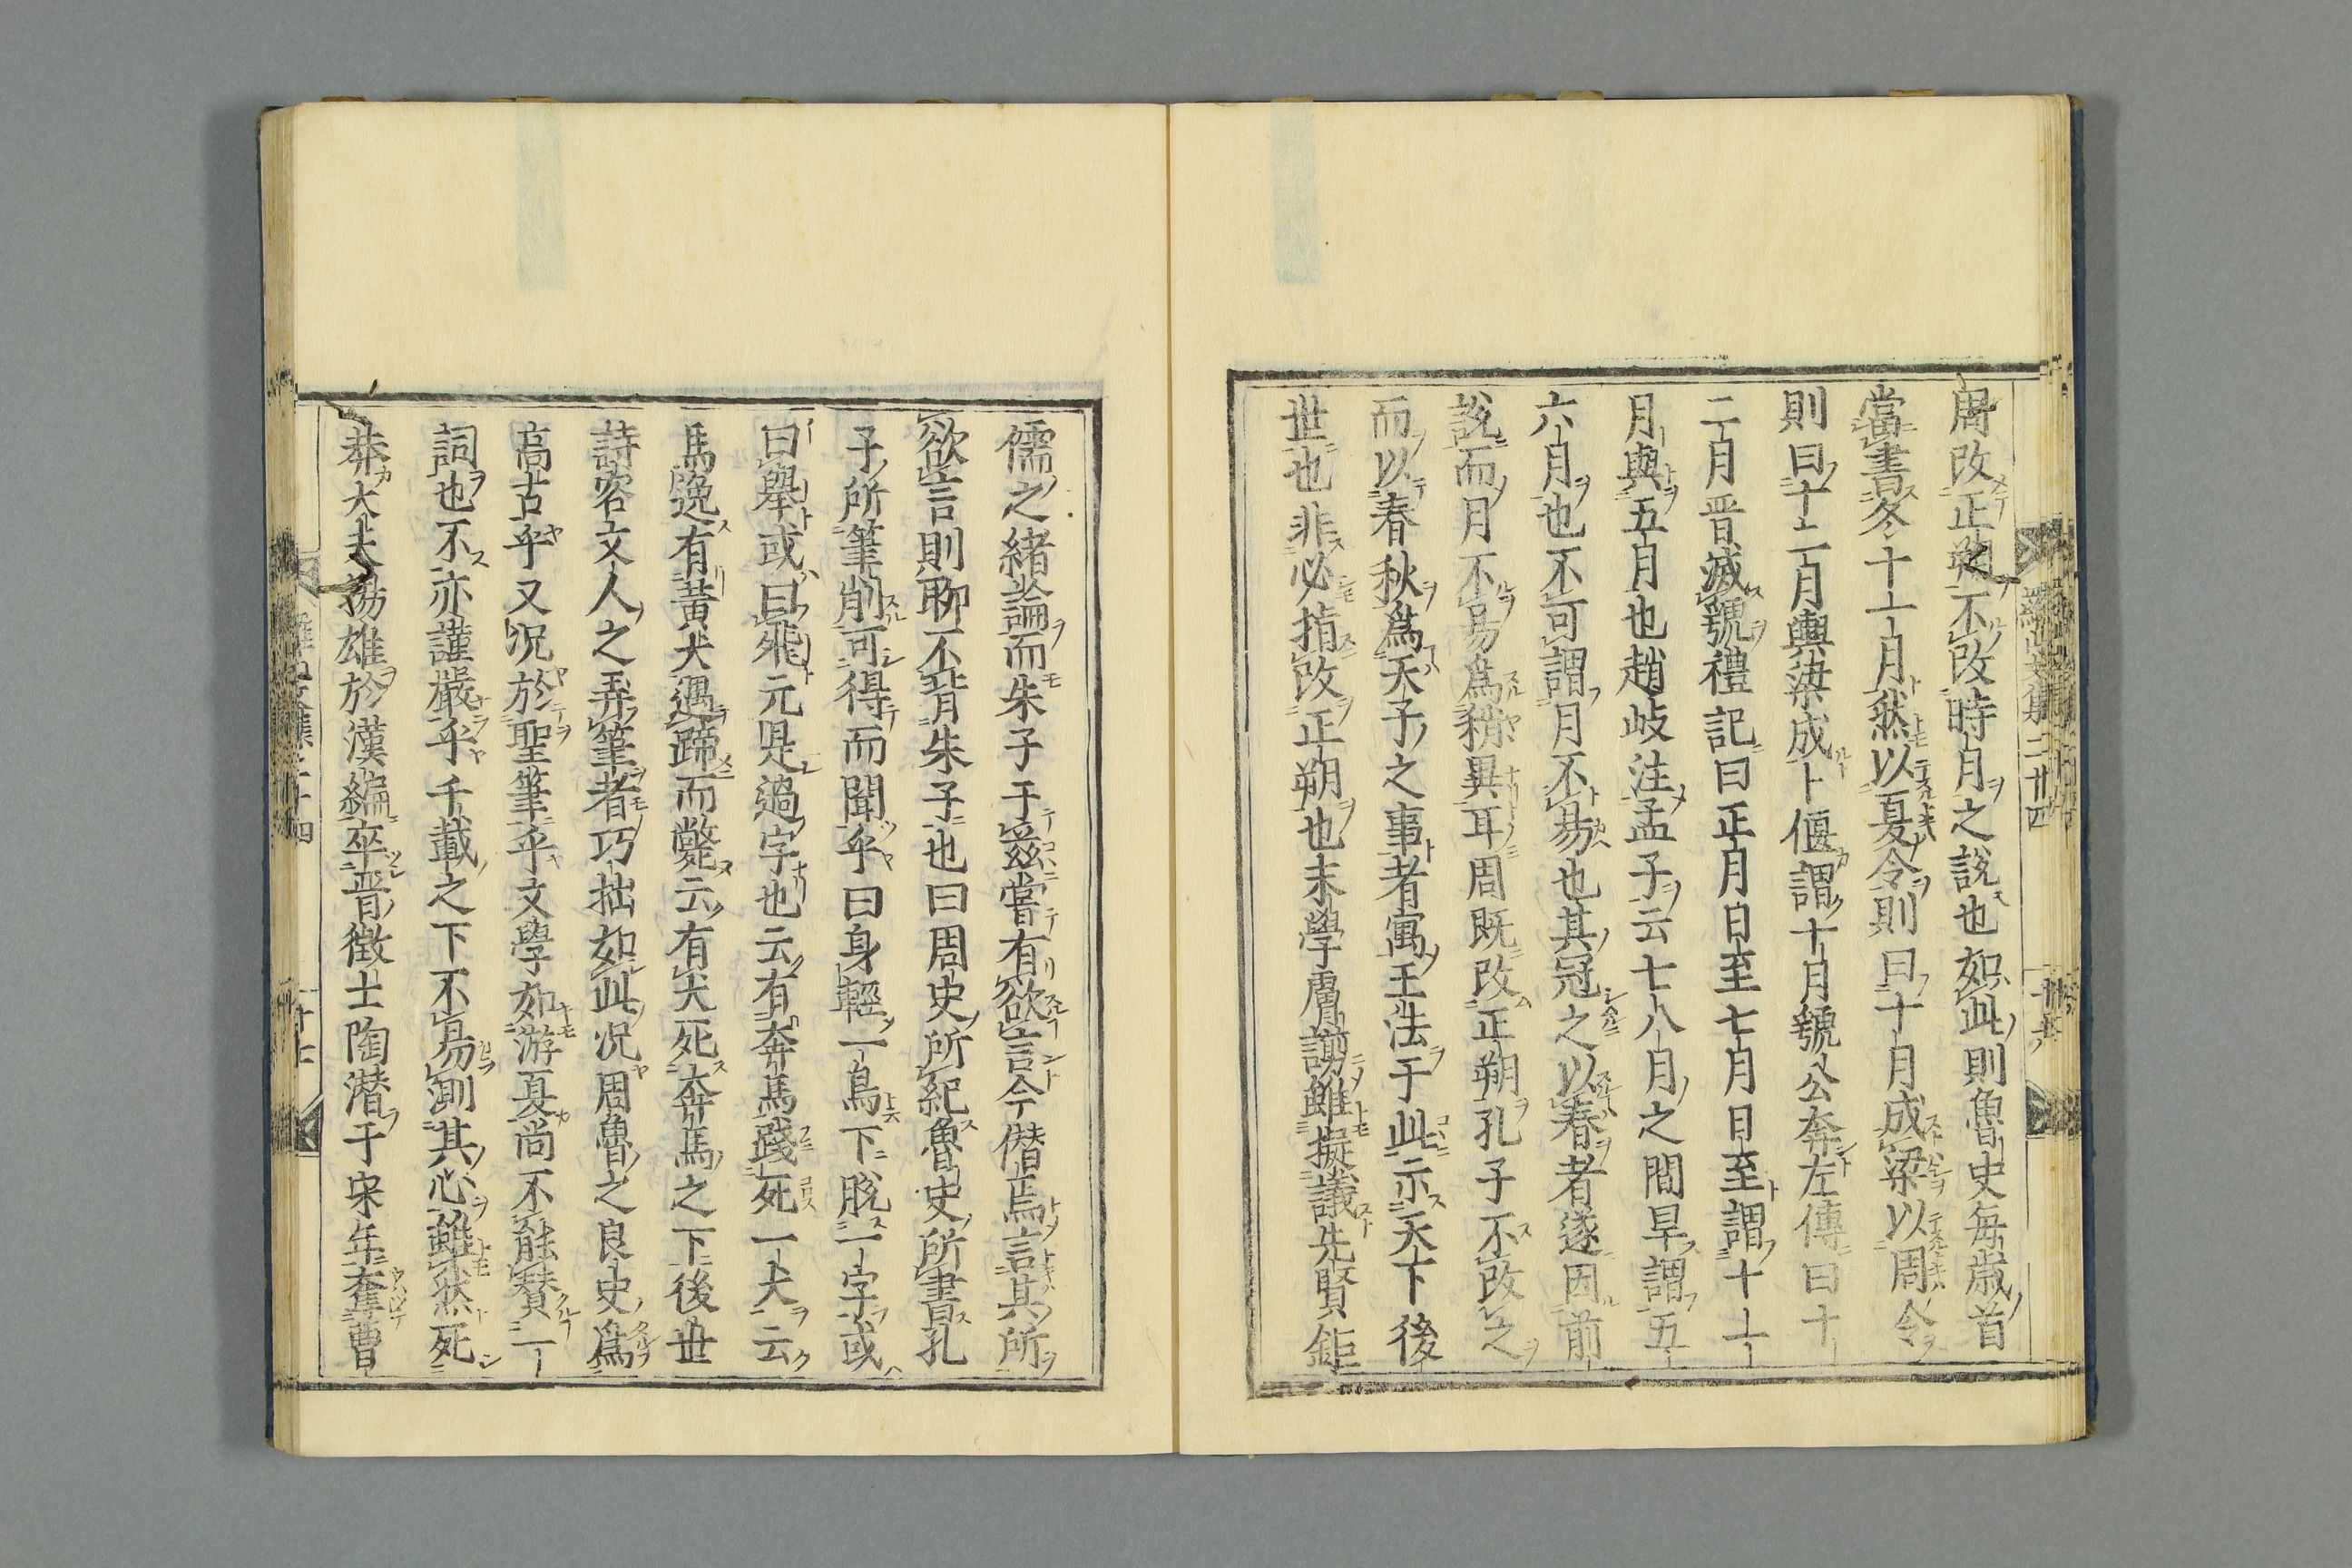 周改正朔不改時月之說也如此則魯史毎歳首
當書冬十一月然以夏令則曰十月成梁以周令
則曰十二月輿梁成卜偃謂十月虢公奔左傳曰十
二月晋滅虢禮記曰正月日至七月日至謂十一
月與五月也趙岐注孟子云七八月之間旱謂五
六月也不可謂月不易也其冠之以春者遂因前
說而月不易爲稍異耳周既改正朔孔子不改之
而以春秋爲天子之事者寓王法于此示天下後
世也非必指改正朔也末學膚謭雖擬議先賢鉅
儒之緒論而朱子于茲嘗有欲言今僣焉言其所
欲言則聊不背朱子也曰周史所紀魯史所書孔
子所筆削可得而聞乎曰身輕一鳥下脫一字或
曰擧或曰飛元是過字也云有奔馬踐死一犬云
馬逸有黃犬遇蹄而斃云有犬死奔馬之下後世
詩客文人之弄筆者巧拙如此况周魯之良史爲
高古乎又况於聖筆乎文學如游夏尚不能賛一
詞也不亦謹嚴乎千載之下不易測其心雖然死
莽大夫揚雄於漢編卒晋徵士陶潜于宋年奪曹